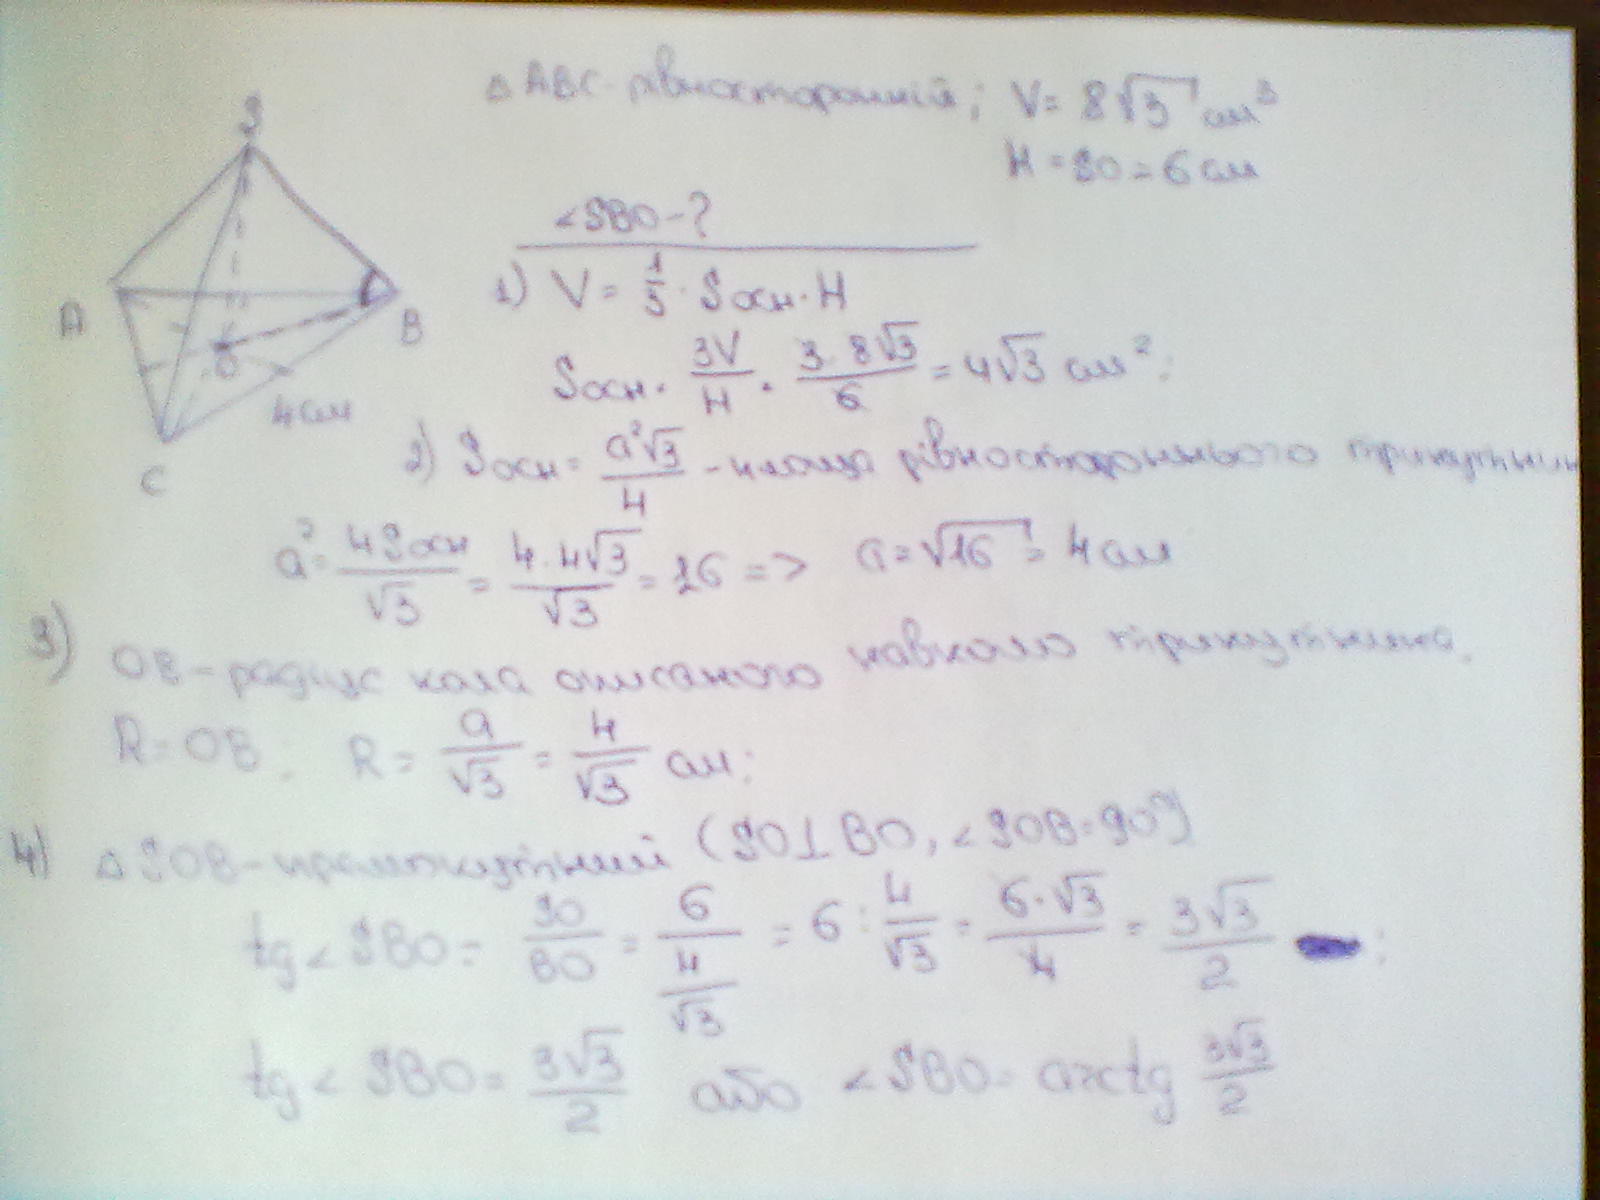 △ABC - рівносторонній; V = 8√3 см³
H = SO = 6 см
∠SBO - ?
S
A
B
O
4 см
C
1) V = 1/3 · Sосн · H
Sосн = 3V/H = 3·8√3/6 = 4√3 см²;
2) Sосн = a²√3/4 - площа рівностороннього
a² = 4Sосн/√3 = 4·4√3/√3 = 16 => a = √16 = 4 см
3) OB - радіус кола описаного навколо трикутника.
R = OB; R = a/√3 = 4/√3 см;
4) △SOB - прямокутний (SO⊥BO, ∠SOB = 90°)
tg∠SBO = SO/BO = 6/(4/√3) = 6 : 4/√3 = 6·√3/4 = 3√3/2 ;
tg∠SBO = 3√3/2 або ∠SBO = arctg 3√3/2